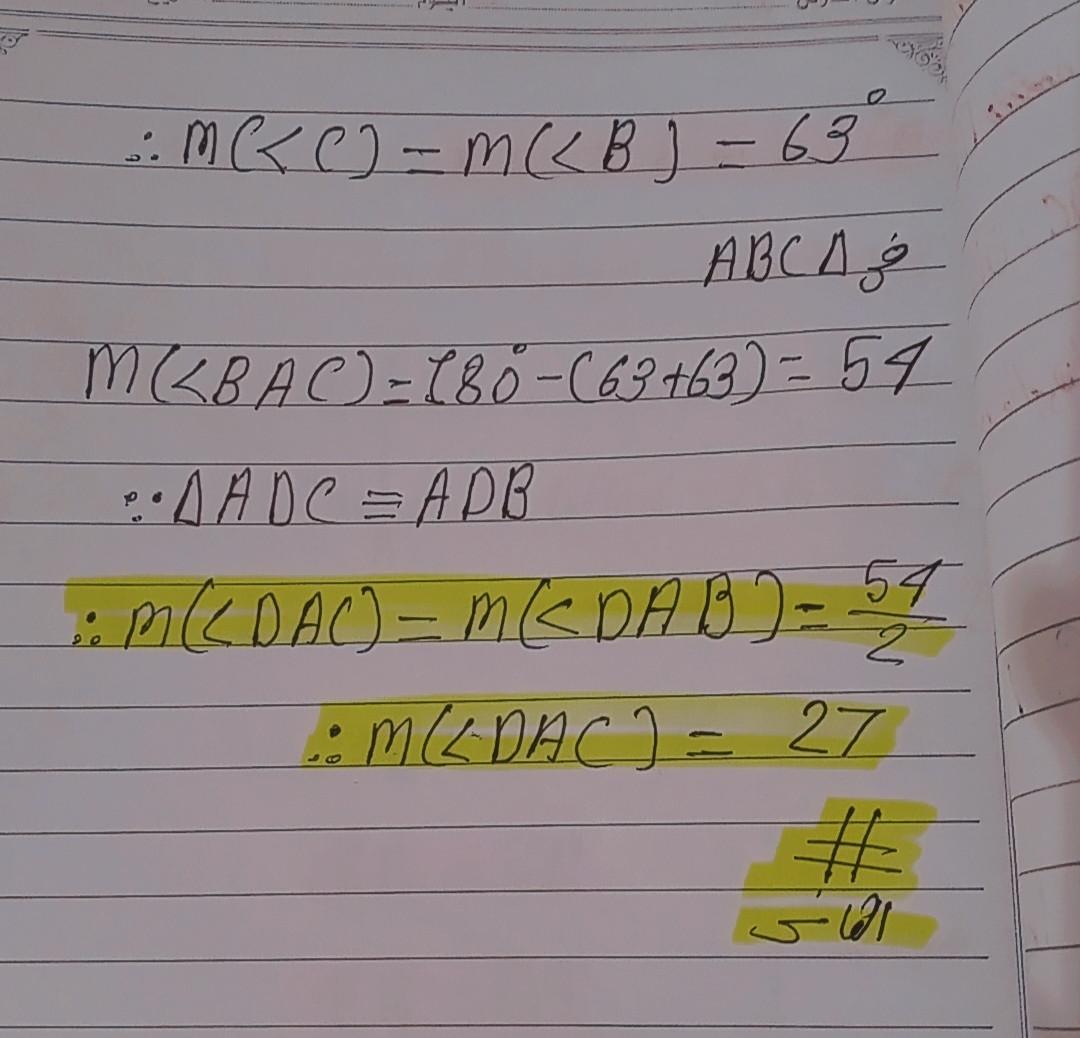 ∴ m(<C) = m(<B) = 63°
في Δ ABC
m(<BAC) = 180° - (63+63) = 54
∵ Δ ADC ≡ ADB
∴ m(<DAC) = m(<DAB) = 54/2
∴ m(<DAC) = 27
#